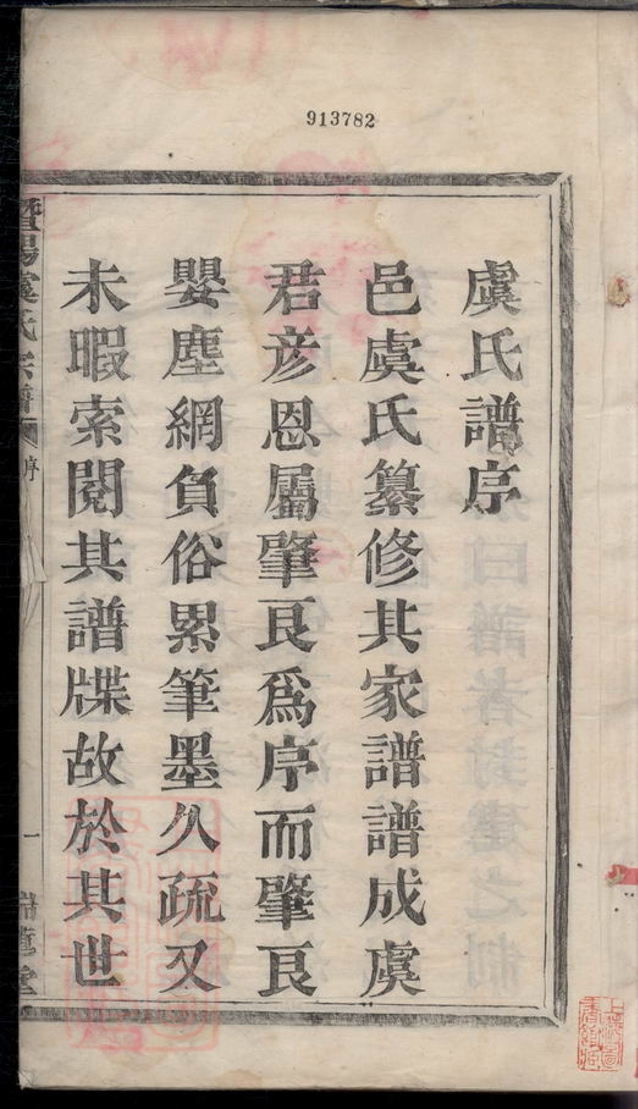 913782
虞氏譜序
邑虞氏纂修其家譜譜成虞
君彦恩屬肇艮爲序而肇艮
嬰塵網負俗累筆墨久疏又
未暇索閱其譜牒故於其世
暨陽虞氏宗譜
序
一